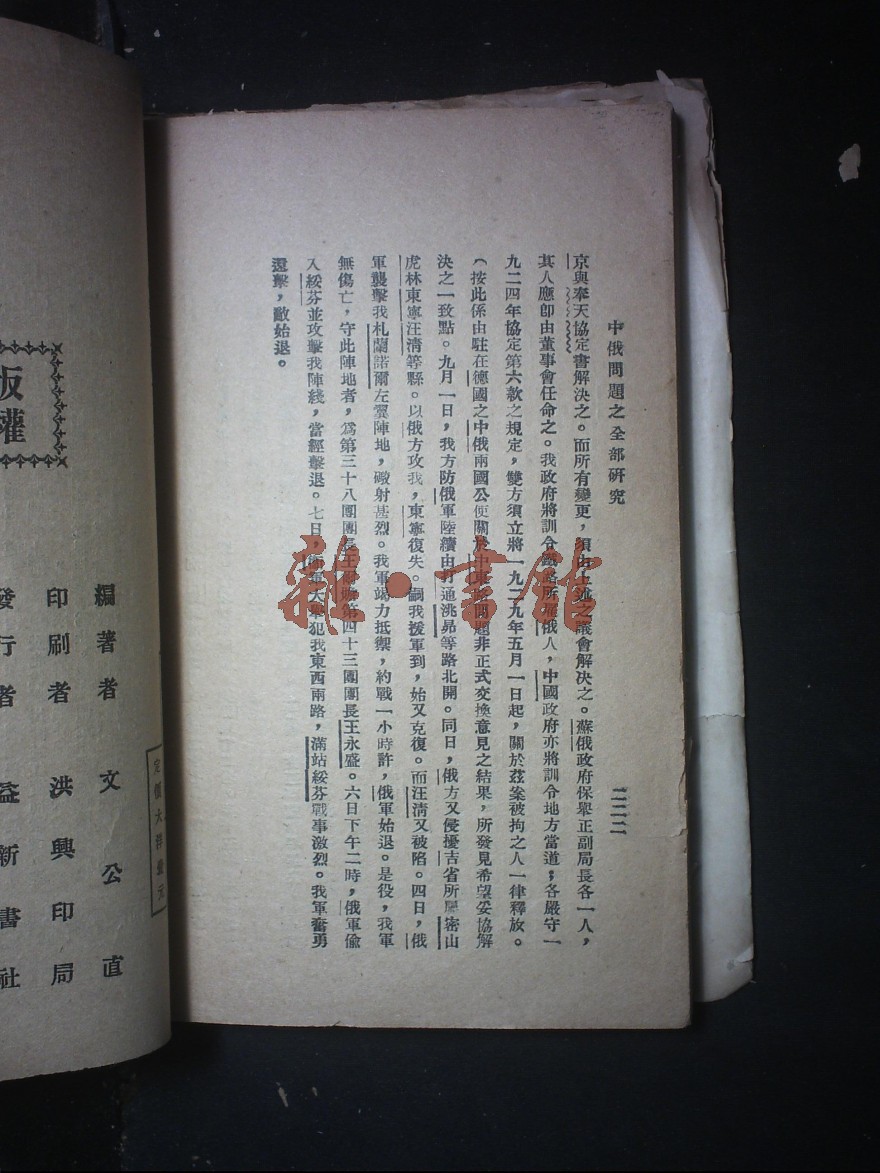 中俄問題之全部研究
二二二
京與奉天協定書解決之。而所有變更，須由上述之議會解決之。蘇俄政府保舉正副局長各一人，
其人應卽由董事會任命之。我政府將訓令鐵路所雇俄人，中國政府亦將訓令地方當道；各嚴守一
九二四年協定第六款之規定，雙方須立將一九二九年五月一日起，關於茲案被拘之人一律釋放。
（按此係由駐在德國之中俄兩國公使關於中東路問題非正式交換意見之結果，所發見希望妥協解
決之一致點。九月一日，我方防俄軍陸續由打通洮昂等路北開。同日，俄方又侵擾吉省所屬密山
虎林東寧汪淸等縣。以俄方攻我，東寧復失。嗣我援軍到，始又克復。而汪淸又被陷。四日，俄
軍襲擊我札蘭諾爾左翼陣地，礮射甚烈。我軍竭力抵禦，約戰一小時許，俄軍始退。是役，我軍
無傷亡，守此陣地者，爲第三十八團團長王 第四十三團團長王永盛。六日下午二時，俄軍偸
入綏芬並攻擊我陣綫，當經擊退。七日，俄軍大舉犯我東西兩路，滿站綏芬戰事激烈。我軍奮勇
還擊，敵始退。
雜·書館
版權
編著者 文公直
印刷者 洪興印局
發行者 益新書社
定價大洋壹元